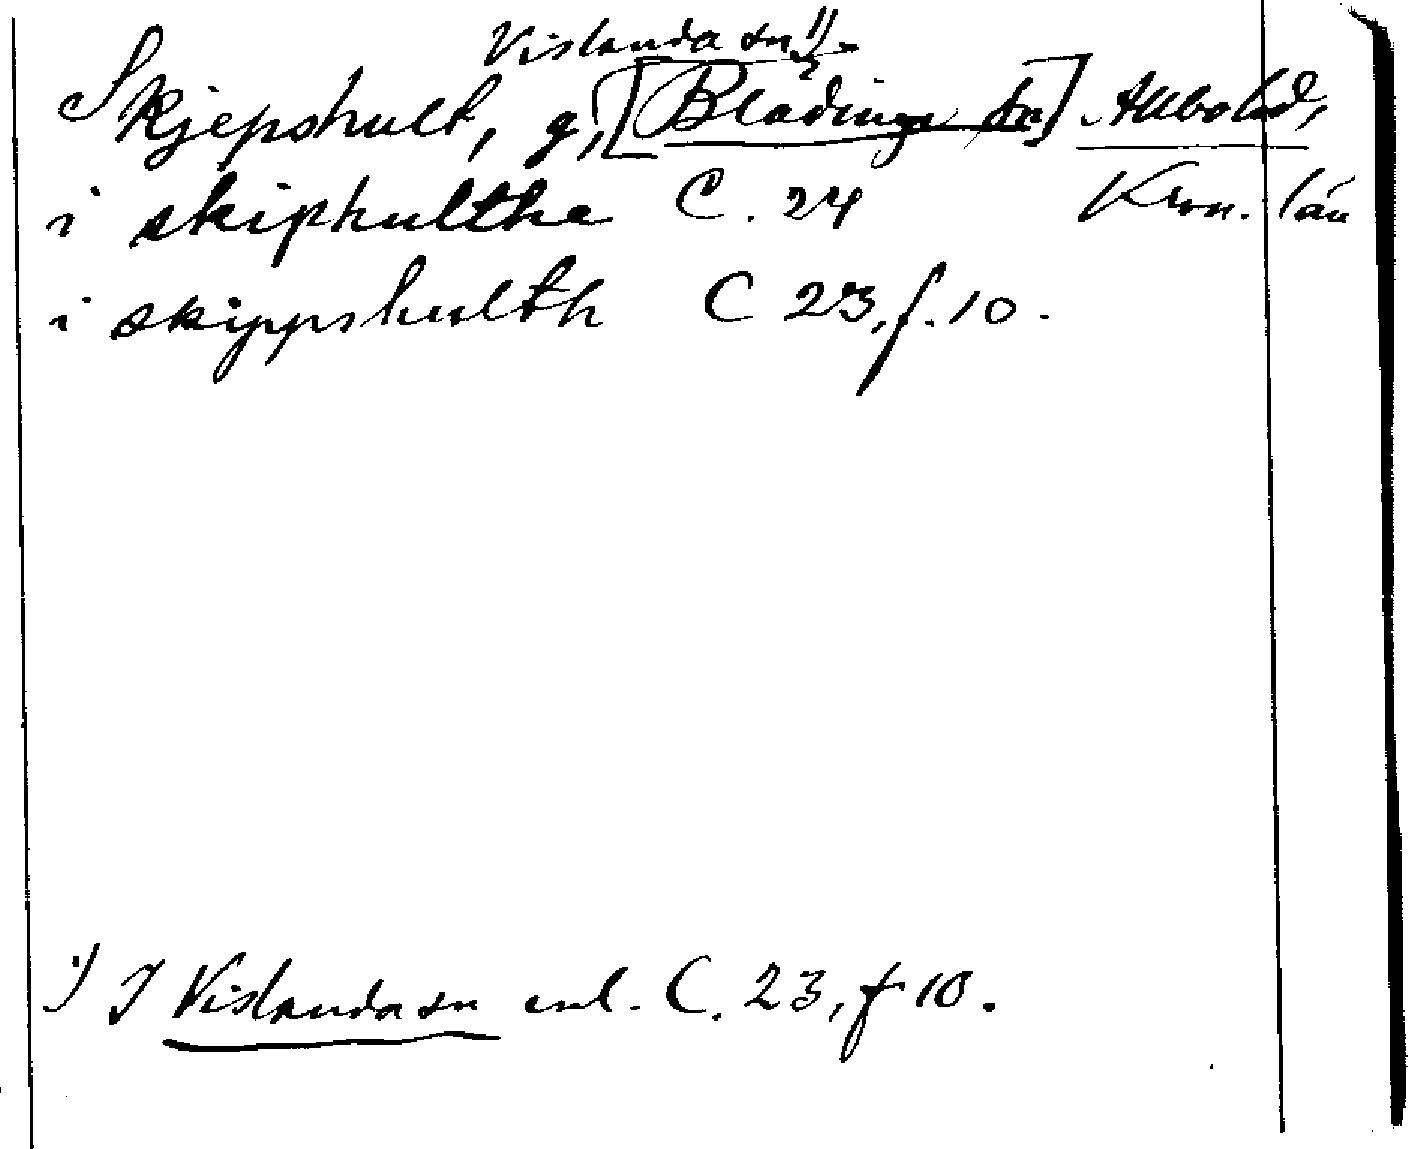 Vislanda sn 1)
Skjepshult, g, [Blädinge sn] Allbo hd,
i skiphulthe C. 24 Kron. län
i skippshulth C 23, f. 10.
1) I Vislanda sn enl. C. 23, f 10.